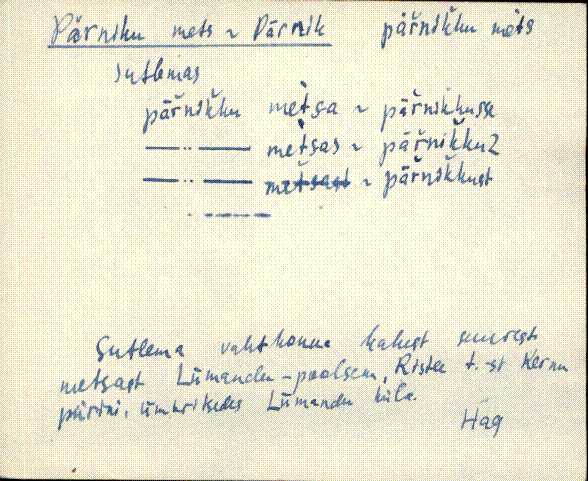 Pärniku mets ~ Pärnik pärnikku mèts
Sutlemas
pärnikku mètsa ~ pärnikkusse
—— ·· —— mètsas ~ pärnikku2
—— ·· —— metsast ~ pärnikkust
Sutlema vahtkonna kahest suurest
metsast Lümandu-poolsem, Ristee t.-st Kernu
piirini, ümbritsedes Lümandu küla.
Hag